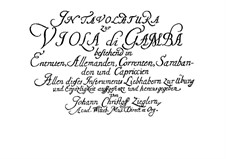 INTAVOLATURA
zur
VIOLA di GAMBA
bestehend in
Entreien, Allemanden, Correnten, Saraban-
den und Capriccien
Allen dieses Instruments Liebhabern zur Übung
und Ergötzligkeit auffgesetzt und herausgegeben
von
Johann Christoff Zieglern
Acad. Witteb. Mus. Direct. et Org.